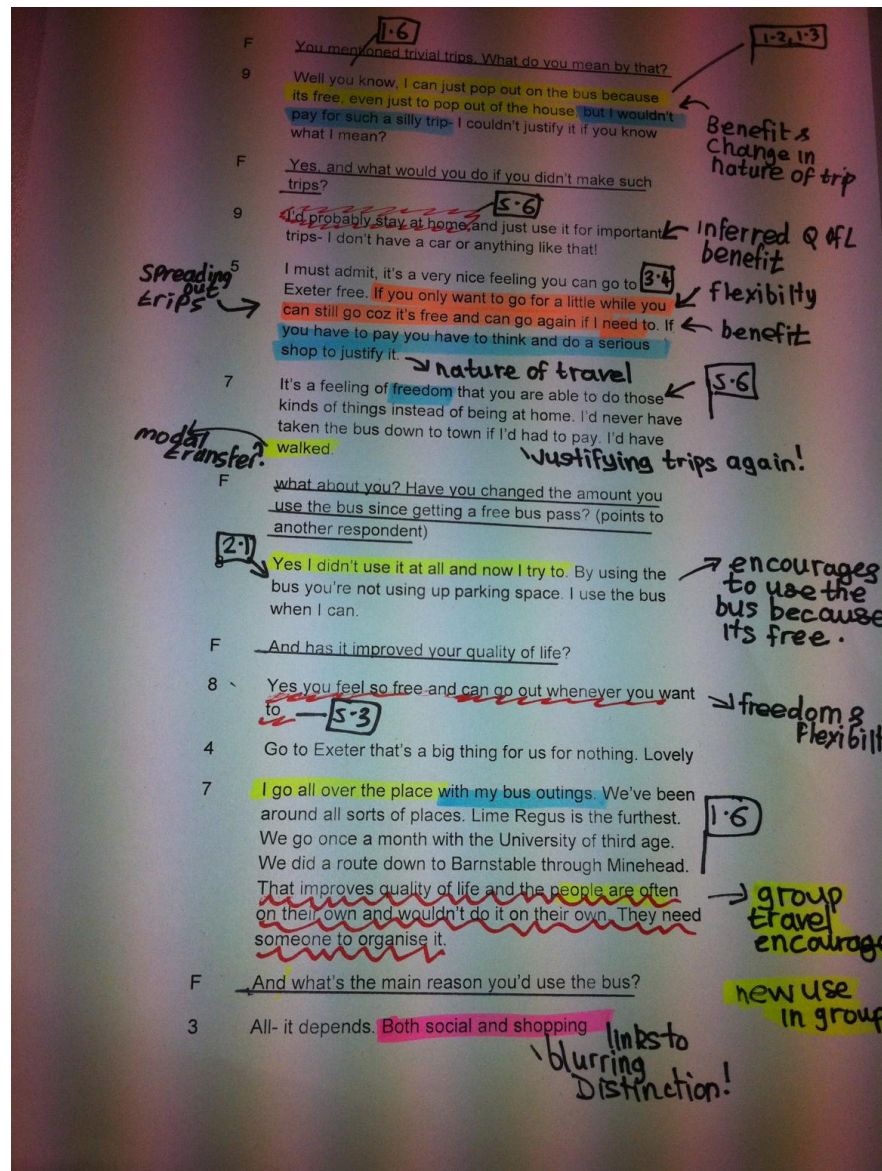 1·6
1·2, 1·3
F You mentioned trivial trips. What do you mean by that?
9 Well you know, I can just pop out on the bus because
its free, even just to pop out of the house, but I wouldn't
pay for such a silly trip- I couldn't justify it if you know
what I mean?
Benefit &
Change in
nature of trip
F Yes, and what would you do if you didn't make such
trips?
5·6
9 I'd probably stay at home and just use it for important
trips- I don't have a car or anything like that!
inferred Q of L
benefit
5 I must admit, it's a very nice feeling you can go to
3·4
Exeter free. If you only want to go for a little while you
can still go coz it's free and can go again if I need to. If
you have to pay you have to think and do a serious
shop to justify it.
spreading
out
trips
flexibilty
benefit
nature of travel
7 It's a feeling of freedom that you are able to do those
kinds of things instead of being at home. I'd never have
taken the bus down to town if I'd had to pay. I'd have
walked.
5·6
modal
transfer?
Justifying trips again!
F what about you? Have you changed the amount you
use the bus since getting a free bus pass? (points to
another respondent)
2·1
Yes I didn't use it at all and now I try to. By using the
bus you're not using up parking space. I use the bus
when I can.
encourages
to use the
bus because
its free.
F And has it improved your quality of life?
8 Yes you feel so free and can go out whenever you want
to
5·3
freedom &
4 Go to Exeter that's a big thing for us for nothing. Lovely
7 I go all over the place with my bus outings. We've been
around all sorts of places. Lime Regus is the furthest.
We go once a month with the University of third age.
We did a route down to Barnstable through Minehead.
That improves quality of life and the people are often
on their own and wouldn't do it on their own. They need
someone to organise it.
1·6
group
travel
F And what's the main reason you'd use the bus?
new use
in group
3 All- it depends. Both social and shopping
links to
blurring
Distinction!